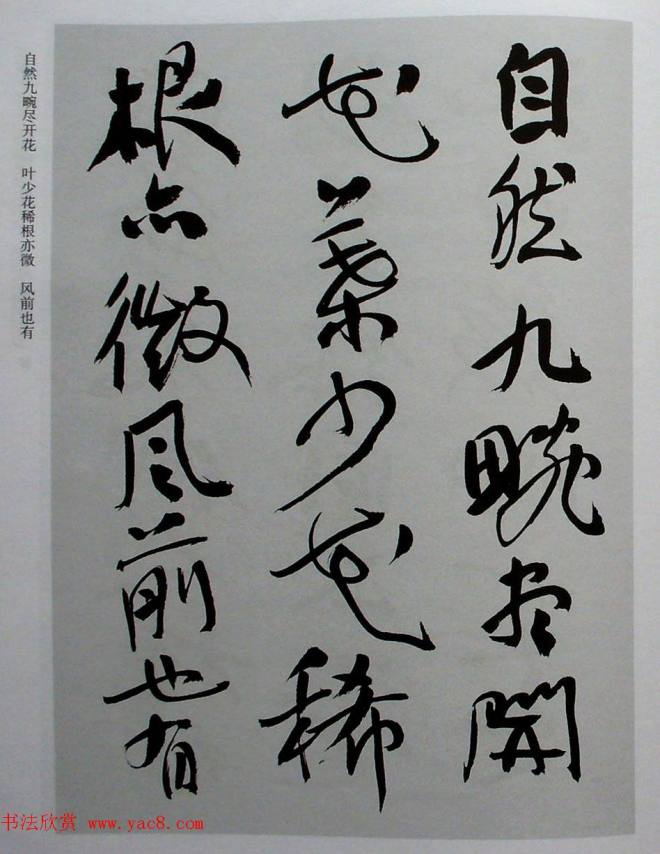 自然九畹尽開
花葉少花稀
根亦微风前也有
自然九畹尽开花 叶少花稀根亦微 风前也有
书法欣赏 www.yac8.com